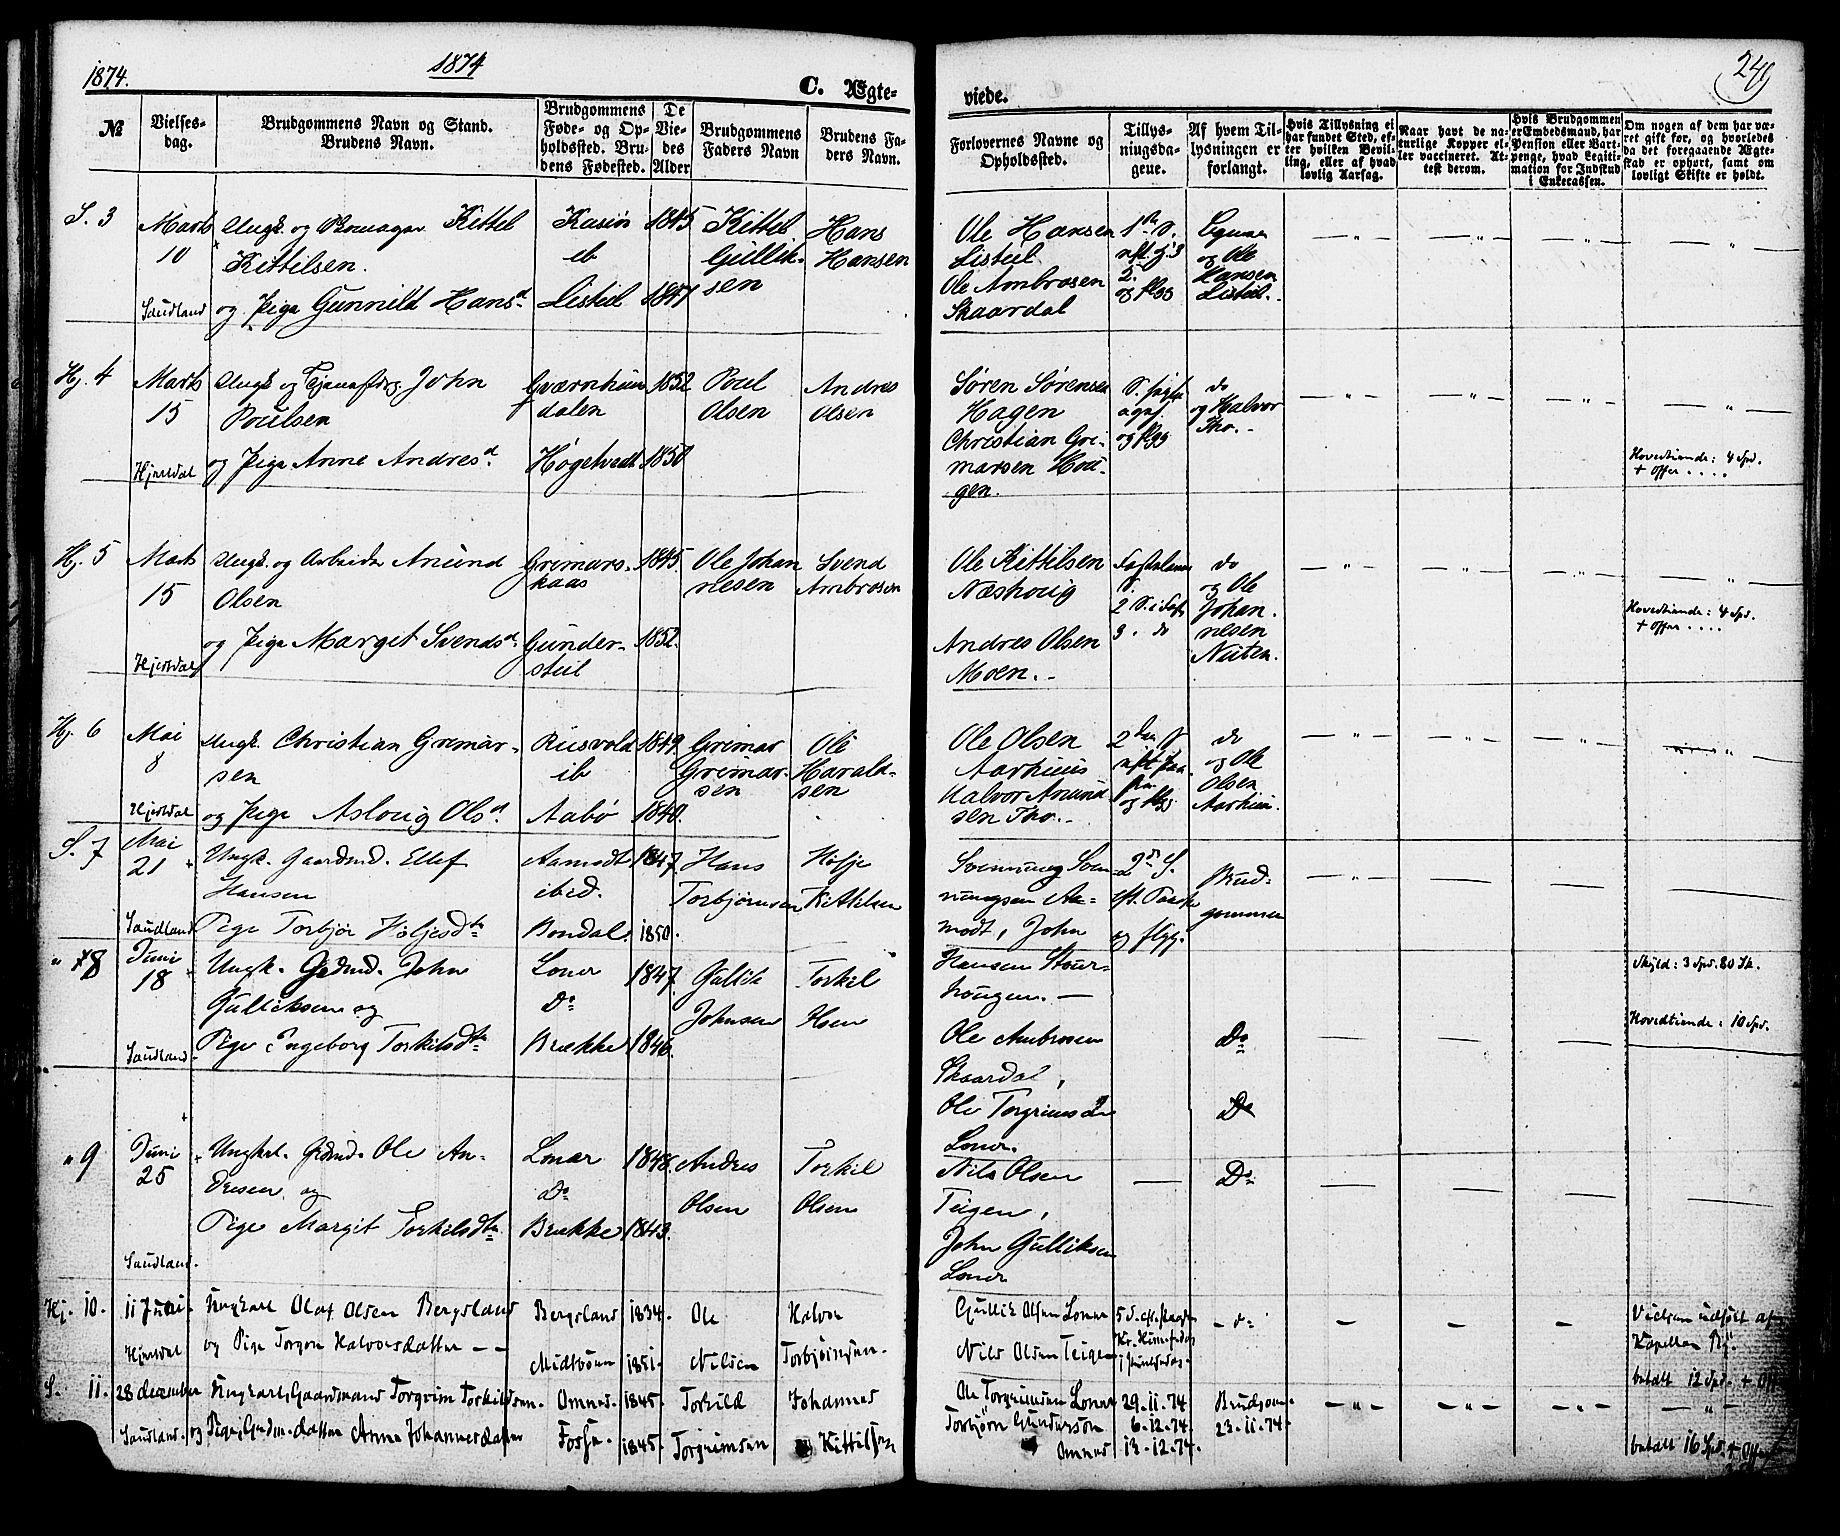 1874.
1874
C. Ægte-
viede.
249
№
Vielses-
dag.
Brudgommens Navn og Stand.
Brudens Navn.
Brudgommens
Føde- og Op-
holdssted. Bru-
dens Fødested.
De
Vie-
des
Alder
Brudgommens
Faders Navn
Brudens Fa-
ders Navn.
Forlovernes Navne og
Opholdssted.
Tillys-
ningsda-
gene.
Af hvem Til-
lysningen er
forlangt.
Hvis Tillysning ei
har fundet Sted, ef-
ter hvilken Bevil-
ling, eller af hvad
lovlig Aarsag.
Naar havt de na-
turlige Kopper el-
ler vaccineret. At-
test derom.
Hvis Brudgommen
er Embedsmand, har
Pension eller Vart-
penge, hvad Legiti-
mation for Indskud
i Enkecassen.
Om nogen af dem har væ-
ret gift før, og hvorledes
da det foregaaende Ægte-
skab er ophørt, samt om
lovligt Skifte er holdt.
S. 3
Marts
10
Saudland
Ungk. og Kittel
Kittilsen.
og Pige Gunnild Hansd.
Kasin
ib
Listul
1845
1847
Kittel
Gullik-
sen
Hans
Hansen
Ole Hansen
Listul.
Ole Ambrosen
Skaardal
og Ole
Hansen
Listul.
Hj. 4
Marts
15
Hjertdal
Ungk. og John
Poulsen
og Pige Anne Andresd.
Gværnhuus
dalen
Høgetvedt
1852
1850
Poul
Olsen
Andres
Olsen
Søren Sørensen
Hagen
Christian Gri-
marsen Hou-
gen.
do
og Halvor
Tho.
Hovedtiende: 4 Spd.
+ Offer . . . .
Hj. 5
Marts
15
Hjertdal
Ungk. og Arbeider Anund
Olsen
og Pige Margit Svendsd.
Grimars-
kaas
Gunder-
stul
1845.
1852.
Ole Johan
nesen
Svend
Ambrosen
Ole Kittilsen
Næshoug
Andres Olsen
Moen.
3. do
do
og Ole
Johan-
nesen
Nuten.
Hovedtiende: 4 Spd.
+ Offer . . . .
Hj. 6
Mai
8
Hjertdal
Ungk. Christian Grimar-
sen
og Pige Asloug Olsd.
Rusvold
ib
Aabø
1849.
1840.
Grimar
Grimar-
sen
Ole
Harald-
sen
Ole Olsen
Aarhuus
Halvor Anund
sen Tho.
do
og Ole
Olsen
Aarhuus.
S. 7
Mai
21
Saudland
Ungk. Gaardmd. Ellef
Hansen
Pige Torbjør Høljesdtr.
Aamodt
ibid.
Bondal.
1847.
1850.
Hans
Torbjørnsen
Holje
Kittilsen
Svennung Sven
nungsen Aa-
modt, John
Hansen Stour-
hougen.
2d S.
eft. Paaske
og flgg.
Brud-
gommen
" 8
Juni
18
Saudland
Ungk. Gdmd. John
Gulliksen og
Pige Ingeborg Torkilsdtr.
Loner
Do
Brække
1847.
1846.
Gullik
Johnsen
Torkil
Olsen
Ole Ambrosen
Skaardal,
Ole Torgrimsen
Loner.
Do
Do
Skyld: 3 Spd. 80 Sk.
Hovedtiende: 10 Spd.
" 9
Juni
25
Saudland.
Ungkel. Gdmd. Ole An-
dresen og
Pige Margit Torkilsdtr.
Loner
Do
Brække
1848.
1843.
Andres
Olsen
Torkil
Olsen
Nils Olsen
Teigen,
John Gulliksen
Loner
Do
Hj. 10.
11 Juni.
Hjertdal
Ungkarl Olaf Olsen Bergsland
og Pige Torgon Halvorsdatter
Bergsland
Midtbøen
1834.
1851.
Ole
Nilsen
Halvor
Torbjørnsen.
Gullik Olsen Loner
Nils Olsen Teigen
do
Vielsen udført af
Kapellan
betalt 12 Spd. + Off
S. 11.
28 december
Saudland.
Ungkarl, Gaardmand Torgrim Torkildsen.
og Pige, Gaardm.datter Anne Johannesdatter
Omnes.
Fosse.
1845.
1845.
Torkild
Torgrimsen
Johannes
Kittilsen
Ole Torgrimsen Loner
Torbjørn Gundersson
Omnes
29-11-74
6-12-74.
13-12-74.
Brudgom-
23-11-74.
betalt 16 Spd. + Offer